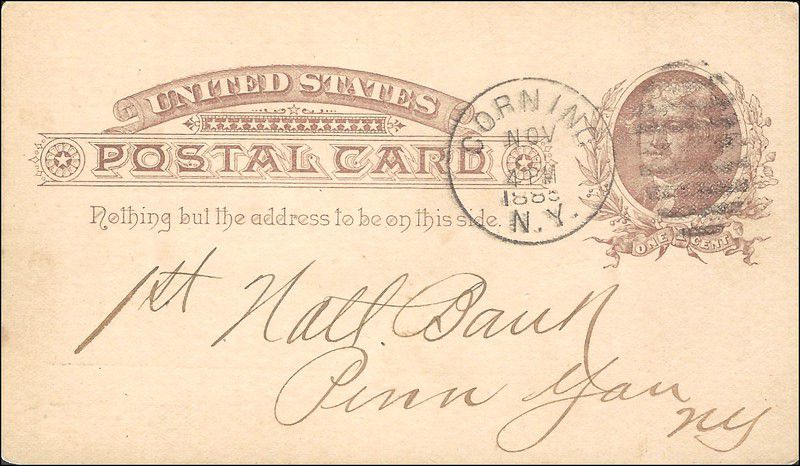 UNITED STATES
POSTAL CARD
Nothing but the address to be on this side.
CORNING
NOV
4PM
N.Y.
ONE CENT
1st Natl. Bank
Penn Yan
NY